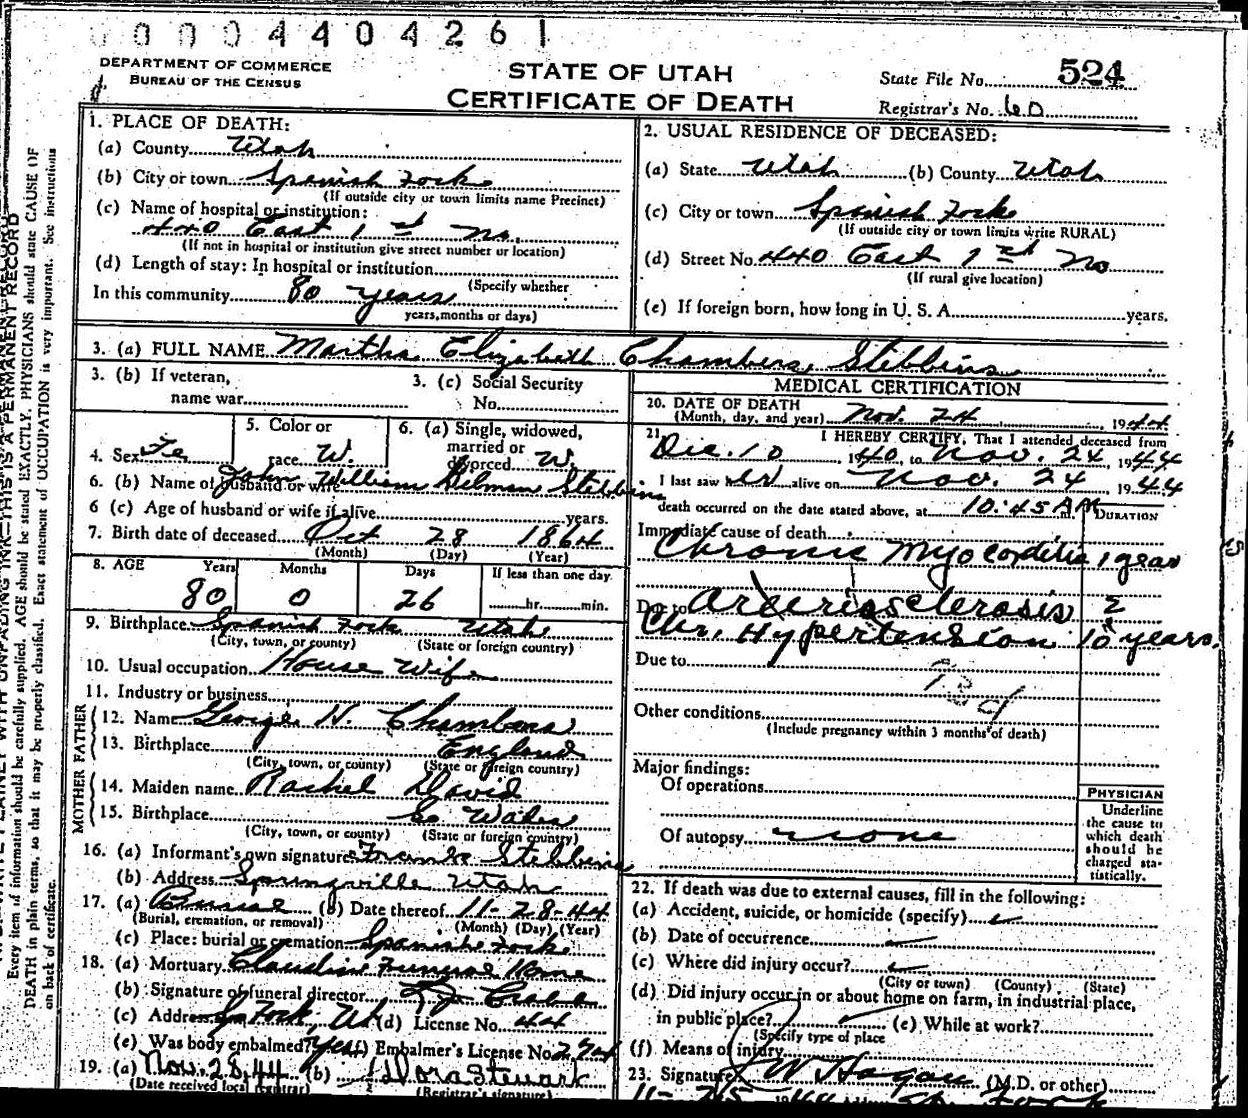 00004404261
DEPARTMENT OF COMMERCE
BUREAU OF THE CENSUS
STATE OF UTAH
CERTIFICATE OF DEATH
State File No. 524
Registrar's No. 60
1. PLACE OF DEATH:
(a) County Utah
(b) City or town Spanish Fork
(If outside city or town limits name Precinct)
(c) Name of hospital or institution:
440 East 1st No.
(If not in hospital or institution give street number or location)
(d) Length of stay: In hospital or institution
(Specify whether
In this community 80 years
years, months or days)
2. USUAL RESIDENCE OF DECEASED:
(a) State Utah (b) County Utah
(c) City or town Spanish Fork
(If outside city or town limits write RURAL)
(d) Street No. 440 East 1st No
(If rural give location)
(e) If foreign born, how long in U. S. A. years.
3. (a) FULL NAME Martha Elizabeth Chambers Stebbins
3. (b) If veteran,
name war
3. (c) Social Security
No.
4. Sex Fe
5. Color or
race W.
6. (a) Single, widowed,
married or
divorced W.
6. (b) Name of husband or wife John William Delman Stebbins
6 (c) Age of husband or wife if alive years.
7. Birth date of deceased Oct 28 1864
(Month) (Day) (Year)
8. AGE Years Months Days If less than one day
80 0 26 hr. min.
9. Birthplace Spanish Fork Utah
(City, town, or county) (State or foreign country)
10. Usual occupation House Wife
11. Industry or business
FATHER
12. Name George H. Chambers
13. Birthplace England
(City, town, or county) (State or foreign country)
MOTHER
14. Maiden name Rachel David
15. Birthplace So Wales
(City, town, or county) (State or foreign country)
16. (a) Informant's own signature Frank Stebbins
(b) Address Springville Utah
17. (a) Burial (b) Date thereof 11-28-44
(Burial, cremation, or removal) (Month) (Day) (Year)
(c) Place: burial or cremation Spanish Fork
18. (a) Mortuary Claudin Funeral Home
(b) Signature of funeral director
(c) Address Sp Fork, Ut (d) License No. 44
(e) Was body embalmed? Yes (f) Embalmer's License No.
19. (a) Nov. 28, 44 (b) Dora Stewart
(Date received local registrar) (Registrar's signature)
MEDICAL CERTIFICATION
20. DATE OF DEATH
(Month, day, and year) Nov. 24, 1944
21. I HEREBY CERTIFY, That I attended deceased from
Dec. 10, 1940, to Nov. 24, 1944
I last saw her alive on Nov. 24 1944
death occurred on the date stated above, at 10:45 AM m.
DURATION
Immediate cause of death
Chronic Myocarditis 1 year
Due to Arteriosclerosis &
Chr. Hypertension 10 years.
Due to
Other conditions
(Include pregnancy within 3 months of death)
Major findings:
Of operations
Of autopsy none
PHYSICIAN
Underline
the cause to
which death
should be
charged sta-
tistically.
22. If death was due to external causes, fill in the following:
(a) Accident, suicide, or homicide (specify)
(b) Date of occurrence
(c) Where did injury occur?
(City or town) (County) (State)
(d) Did injury occur in or about home on farm, in industrial place,
in public place? (e) While at work?
(Specify type of place
(f) Means of injury
23. Signature W Hagan (M.D. or other)
THIS IS A PERMANENT RECORD
Every item of information should be carefully supplied. AGE should be stated EXACTLY. PHYSICIANS should state CAUSE OF
DEATH in plain terms, so that it may be properly classified. Exact statement of OCCUPATION is very important. See instructions
on back of certificate.